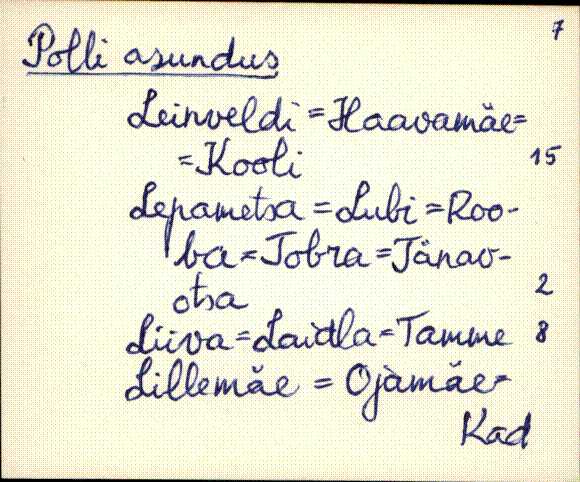 7
Polli asundus
Leinveldi = Haavamäe =
= Kooli 15
Lepametsa = Lubi = Roo-
ba = Tobra = Tänav-
otsa 2
Liiva = Laidla = Tamme 8
Lillemäe = Ojamäe =
Kad